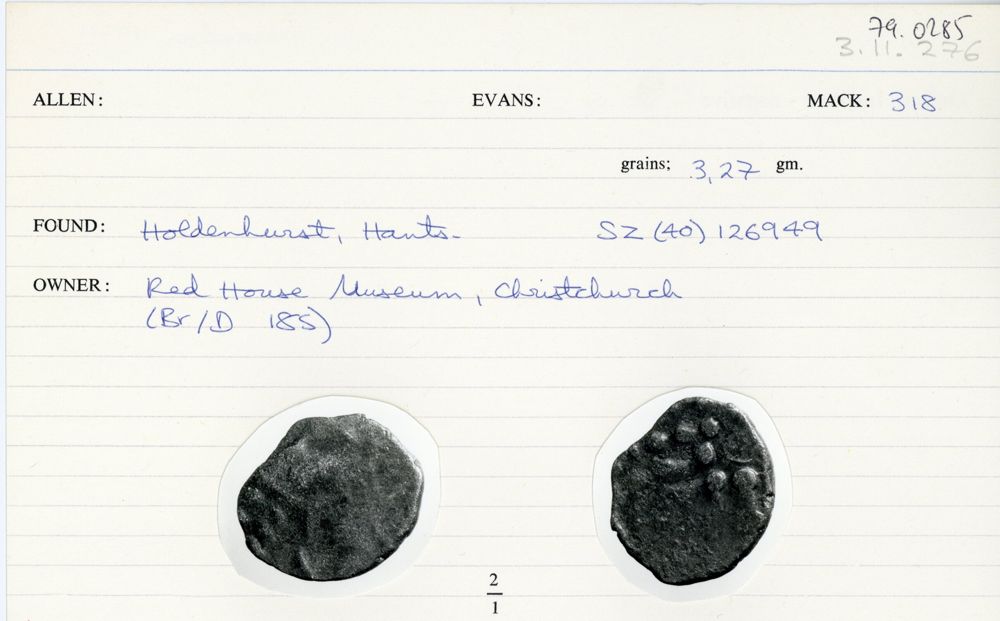 79.0285
3.11.276
ALLEN: EVANS: MACK: 318
grains; 3,27 gm.
FOUND: Holdenhurst, Hants. SZ (40) 126949
OWNER: Red House Museum, Christchurch
(Br/D 185)
2
1